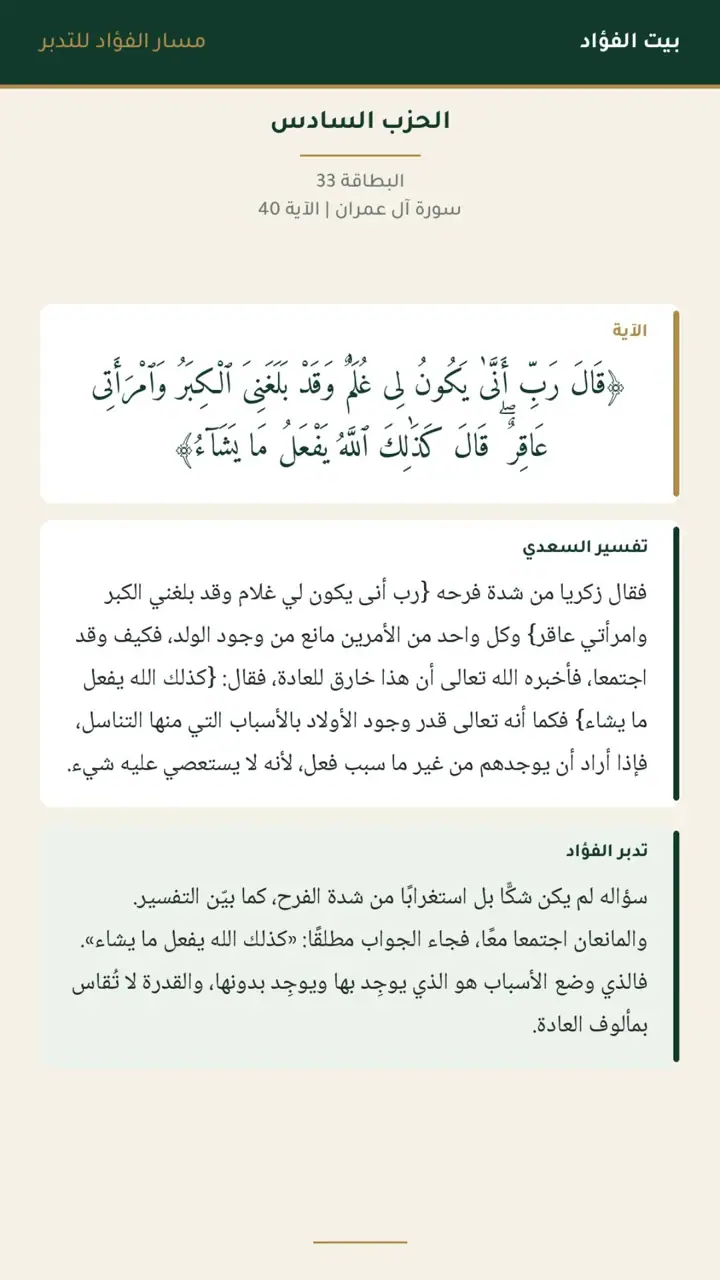 بيت الفؤاد
مسار الفؤاد للتدبر
الحزب السادس
البطاقة 33
سورة آل عمران | الآية 40
الآية
﴿قَالَ رَبِّ أَنَّىٰ يَكُونُ لِى غُلَٰمٌ وَقَدْ بَلَغَنِىَ ٱلْكِبَرُ وَٱمْرَأَتِى
عَاقِرٌ ۖ قَالَ كَذَٰلِكَ ٱللَّهُ يَفْعَلُ مَا يَشَآءُ﴾
تفسير السعدي
فقال زكريا من شدة فرحه {رب أنى يكون لي غلام وقد بلغني الكبر
وامرأتي عاقر} وكل واحد من الأمرين مانع من وجود الولد، فكيف وقد
اجتمعا، فأخبره الله تعالى أن هذا خارق للعادة، فقال: {كذلك الله يفعل
ما يشاء} فكما أنه تعالى قدر وجود الأولاد بالأسباب التي منها التناسل،
فإذا أراد أن يوجدهم من غير ما سبب فعل، لأنه لا يستعصي عليه شيء.
تدبر الفؤاد
سؤاله لم يكن شكًّا بل استغرابًا من شدة الفرح، كما بيّن التفسير.
والمانعان اجتمعا معًا، فجاء الجواب مطلقًا: «كذلك الله يفعل ما يشاء».
فالذي وضع الأسباب هو الذي يوجِد بها ويوجِد بدونها، والقدرة لا تُقاس
بمألوف العادة.